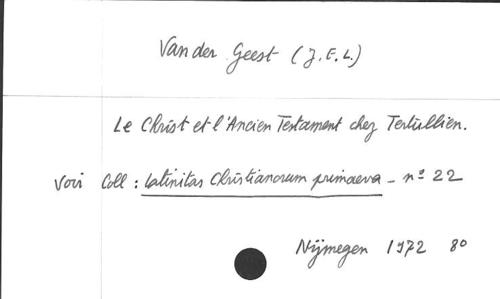 Van der Geest (J.E.L.)
Le Christ et l'Ancien Testament chez Tertullien.
Voir Coll : Latinitas Christianorum primaeva - nº 22
Nijmegen 1972 80